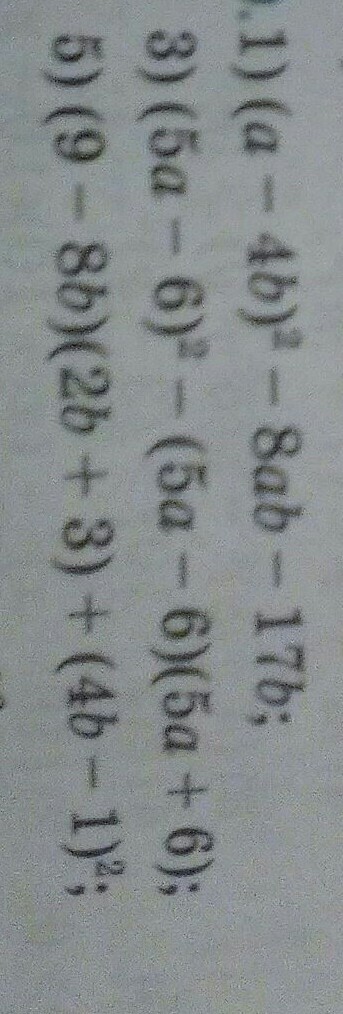 1) (a − 4b)² − 8ab − 17b;
3) (5a − 6)² − (5a − 6)(5a + 6);
5) (9 − 8b)(2b + 3) + (4b − 1)²;